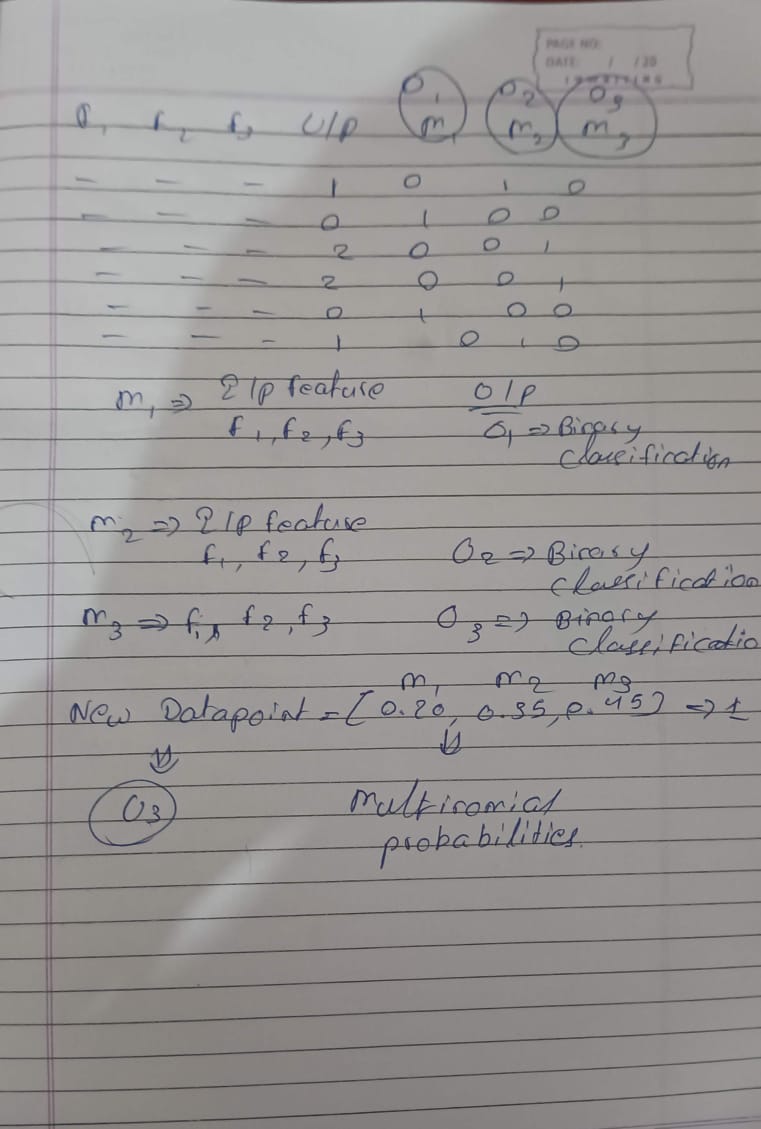 PAGE NO:
DATE: / /20
O1 O2 O3
f1 f2 f3 O/P m1 m2 m3
- - - 1 0 1 0
- - - 0 1 0 0
- - - 2 0 0 1
- - - 2 0 0 1
- - - 0 1 0 0
- - - 1 0 1 0
m1 ⇒ I/p feature O/P
f1, f2, f3 O1 ⇒ Binary
classification
m2 ⇒ I/p feature
f1, f2, f3 O2 ⇒ Binary
classification
m3 ⇒ f1, f2, f3 O3 ⇒ Binary
classificatio
m1 m2 m3
New Datapoint = [0.20, 0.35, 0.45] ⇒ 1
⇓ ⇓
O3 multinomial
probabilities.